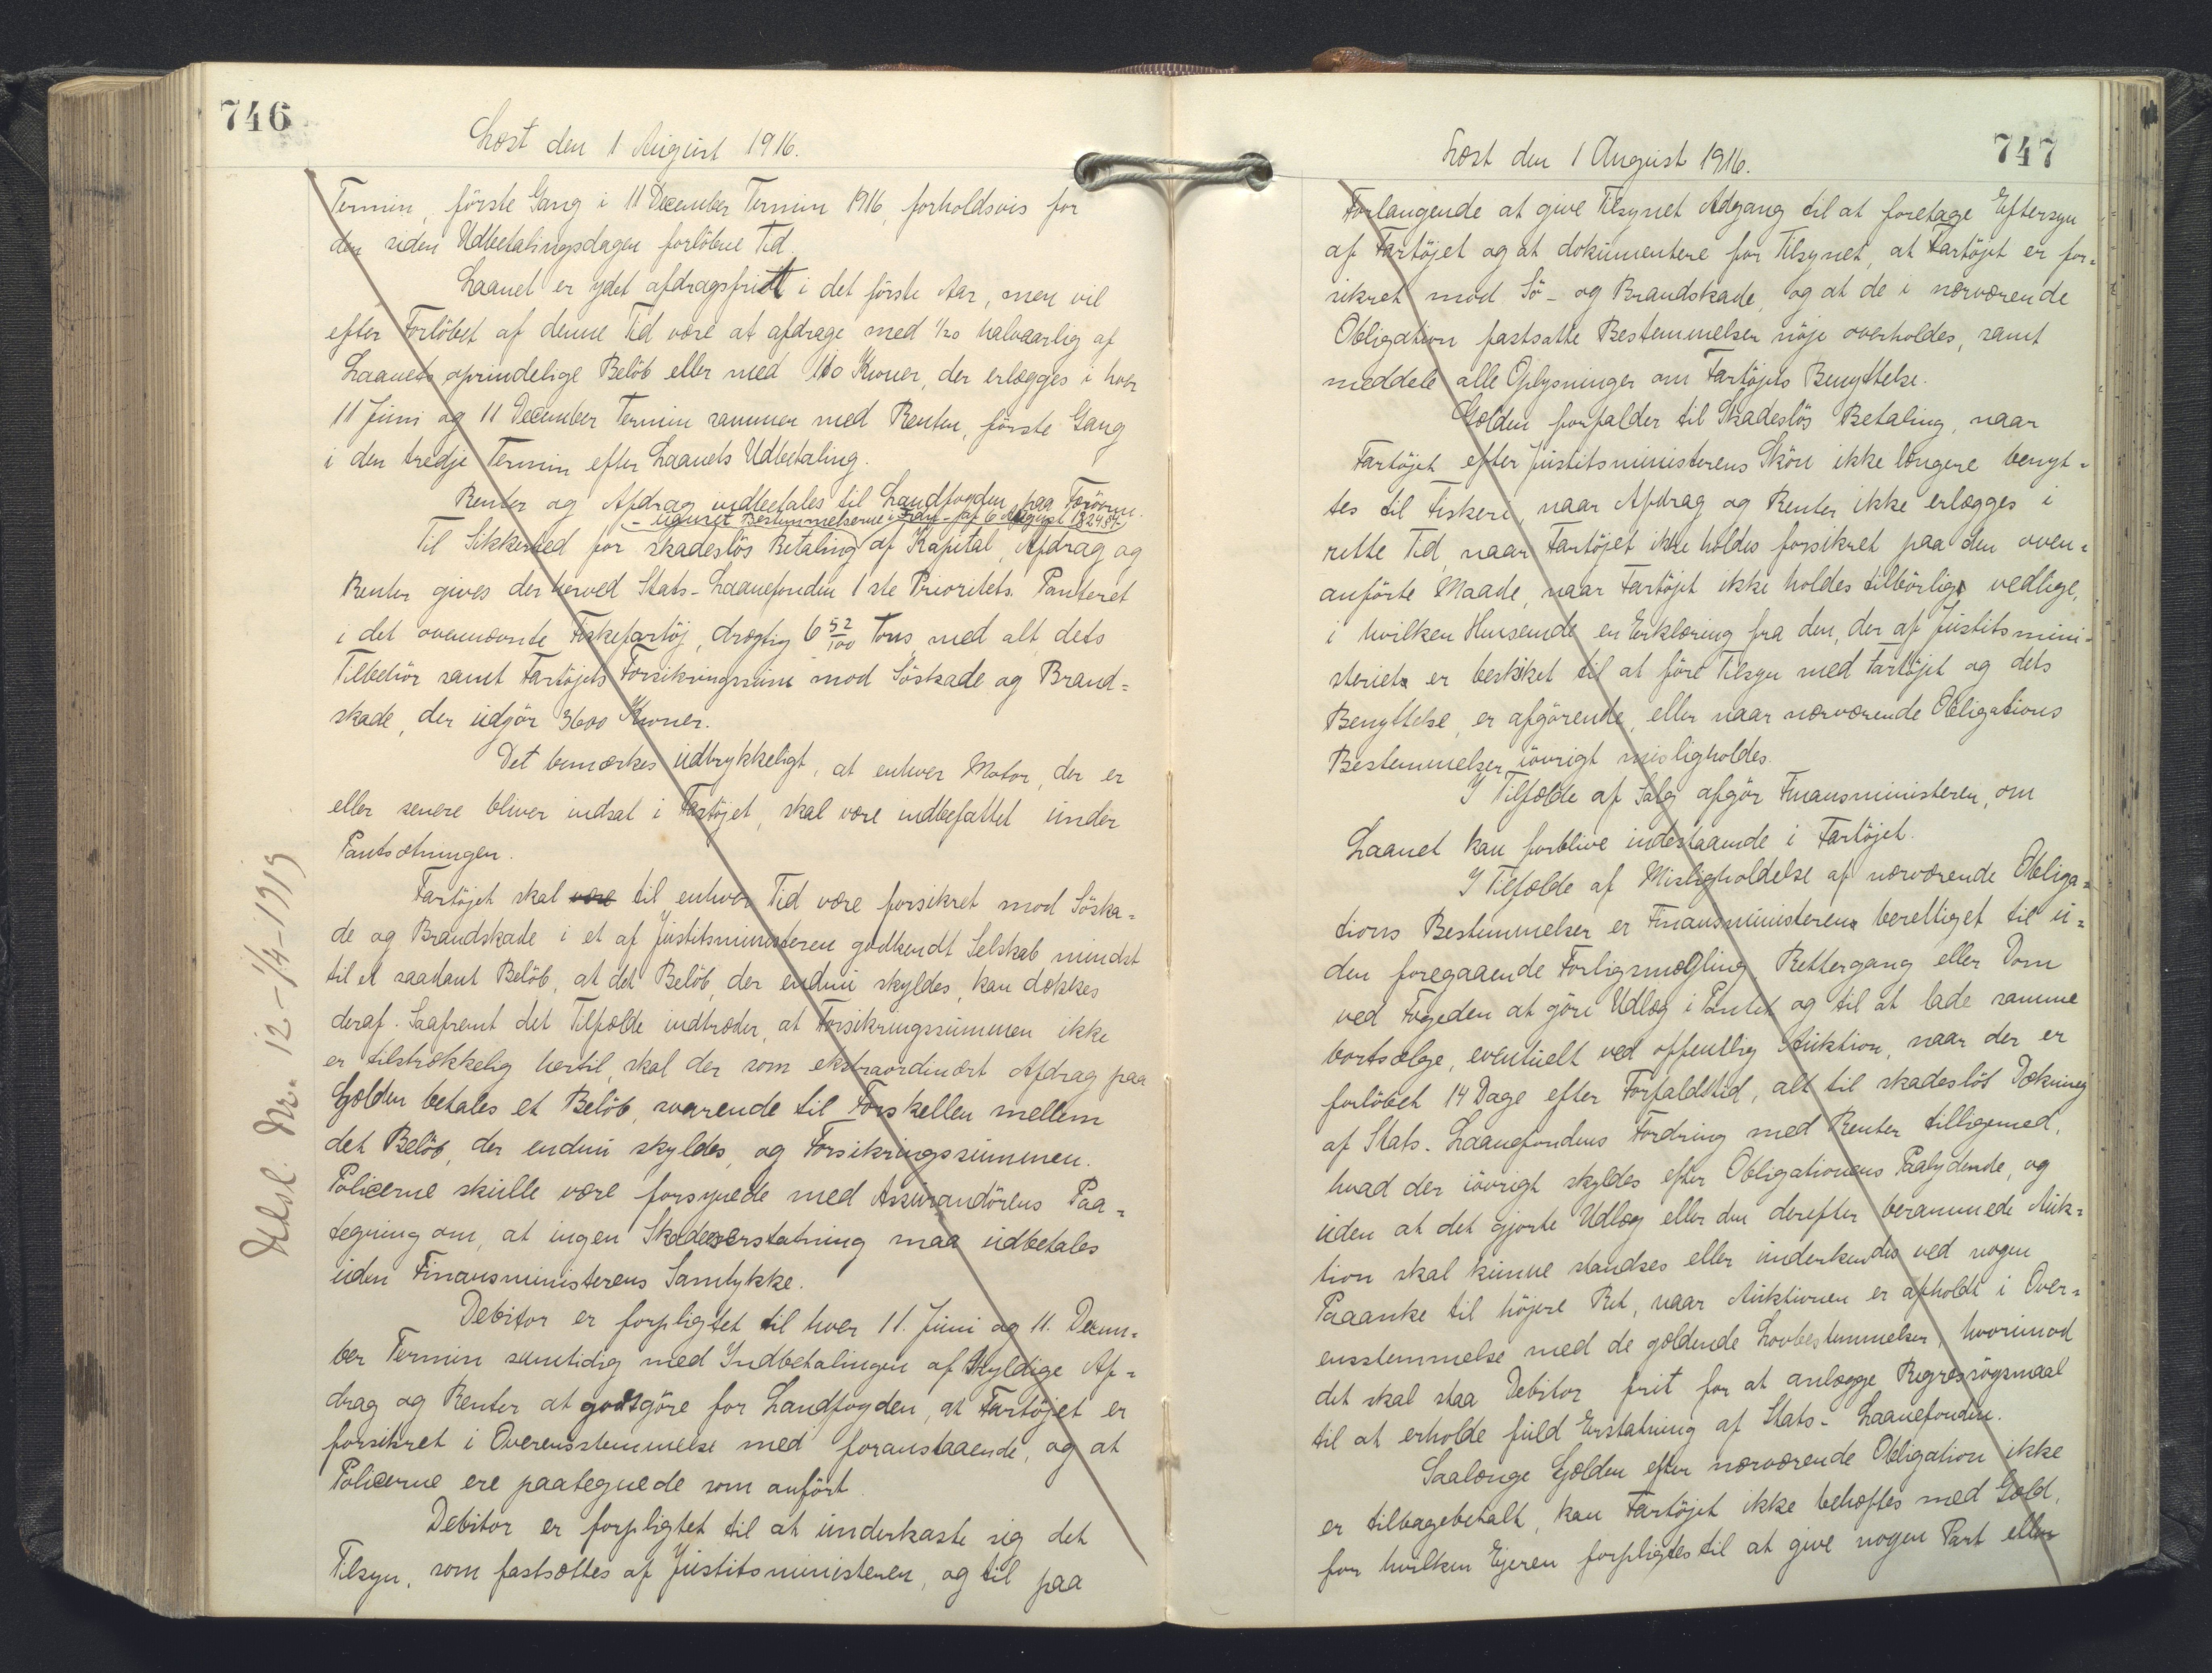 746
Læst den 1 August 1916.
Termin, förste Gang i 11 December Termin 1916, forholdsvis for
den siden Udbetalingsdagen forlöbne Tid.
Laanet er ydet afdragsfrit i det förste Aar, men vil
efter Forlöbet af denne Tid være at afdrage med 1/20 halvaarlig af
Laanets oprindelige Belöb eller med 110 Kroner, der erlægges i hver
11 Juni og 11 December Termin sammen med Renten, förste Gang
i den tredje Termin efter Laanets Udbetaling.
Renter og Afdrag indbetales til Landfogden paa Færöerne.
- uanset Bestemmelserne i Frdn. af 6 August 1824 §4
Til Sikkerhed for skadeslös Betaling af Kapital, Afdrag og
Renter gives der herved Stats-Laanefonden 1ste Prioritets Panteret
i det ovennævnte Fiskefartöj, drægtig 6 52/100 Tons, med alt dets
Tilbehör samt Fartöjets Forsikringssum mod Söskade og Brand=
skade, der udgör 3600 Kroner.
Det bemærkes udtrykkeligt, at enhver Motor, der er
eller senere bliver indsat i Fartöjet, skal være indbefattet under
Pantsætningen.
Fartöjet skal være til enhver Tid være forsikret mod Söska=
de og Brandskade i et af Justitsministeren godkendt Selskab mindst
til et saadant Belöb, at det Belöb, der endnu skyldes, kan dækkes
deraf. Saafremt det Tilfælde indtræder, at Forsikringssummen ikke
er tilstrækkelig hertil, skal der som ekstraordinært Afdrag paa
Gælden betales et Belöb, svarende til Forskellen mellem
det Belöb, der endnu skyldes, og Forsikringssummen.
Policerne skulle være forsynede med Assurandörens Paa=
tegning om, at ingen Skadeserstatning maa udbetales
uden Finansministerens Samtykke.
Debitor er forpligtet til hver 11. Juni og 11. Decem=
ber Termin samtidig med Indbetalingen af skyldige Af=
drag og Renter at godtgöre for Landfogden, at Fartöjet er
forsikret i Overensstemmelse med foranstaaende, og at
Policerne ere paategnede som anfört.
Debitor er forpligtet til at underkaste sig det
Tilsyn, som fastsættes af Justitsministeren, og til paa
Udsl. Nr. 12 - 1/4 - 1919
747
Læst den 1 August 1916.
Forlangende at give Tilsynet Adgang til at foretage Eftersyn
af Fartöjet og at dokumentere for Tilsynet, at Fartöjet er for=
sikret mod Sö- og Brandskade, og at de i nærværende
Obligation fastsatte Bestemmelser nöje overholdes, samt
meddele alle Oplysninger om Fartöjets Benyttelse.
Gælden forfalder til Skadeslös Betaling, naar
Fartöjet efter Justitsministerens Skön ikke længere benyt=
tes til Fiskeri, naar Afdrag og Renter ikke erlægges i
rette Tid, naar Fartöjet ikke holdes forsikret paa den oven=
anförte Maade, naar Fartöjet ikke holdes tilbörlig vedlige,
i hvilken Henseende en Erklæring fra den, der af Justitsmini=
steriet er beskikket til at före Tilsyn med Fartöjet og dets
Benyttelse, er afgörende, eller naar nærværende Obligations
Bestemmelser iövrigt misligholdes.
I Tilfælde af Salg afgör Finansministeren, om
Laanet kan forblive indestaaende i Fartöjet.
I Tilfælde af Misligholdelse af nærværende Obliga=
tions Bestemmelser er Finansministeren berettiget til u=
den foregaaende Forligsmægling, Rettergang eller Dom
ved Fogeden at göre Udlæg i Pantet og til at lade samme
bortsælge, eventuelt ved offentlig Auktion, naar der er
forlöbet 14 Dage efter Forfaldstid, alt til skadeslös Dækning
af Stats-Laanefondens Fordring med Renter tilligemed,
hvad der iövrigt skyldes efter Obligationens Paalydende, og
uden at det gjorte Udlæg eller den derefter berammede Auk=
tion skal kunne standses eller underkendes ved nogen
Paaanke til höjere Ret, naar Auktionen er afholdt i Over=
ensstemmelse med de gældende Lovbestemmelser, hvorimod
det skal staa Debitor frit for at anlægge Regressögsmaal
til at erholde fuld Erstatning af Stats-Laanefonden.
Saalænge Gælden efter nærværende Obligation ikke
er tilbagebetalt, kan Fartöjet ikke behæftes med Gæld,
for hvilken Ejeren forpligtes til at give nogen Part eller